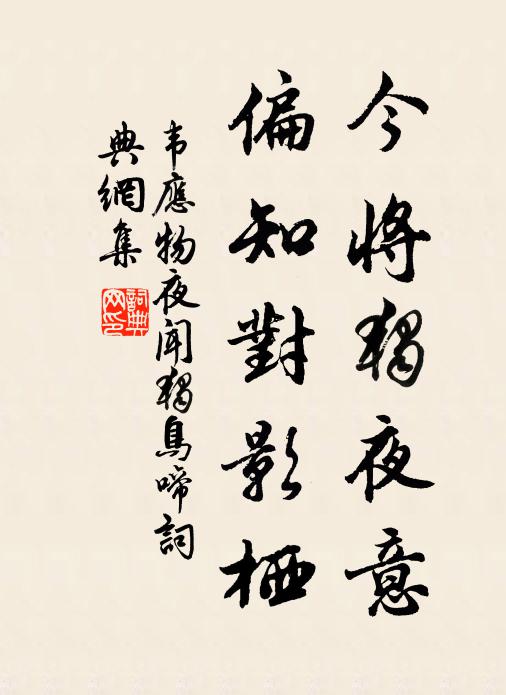 今將獨夜意
偏知對影栖
韦應物夜聞獨鳥啼詞
典網集
詞典網印